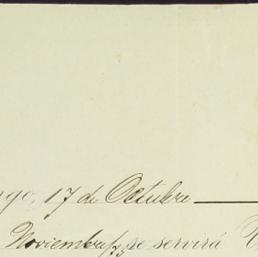 go, 17 de Octubre
Noviembre/73 se servirá